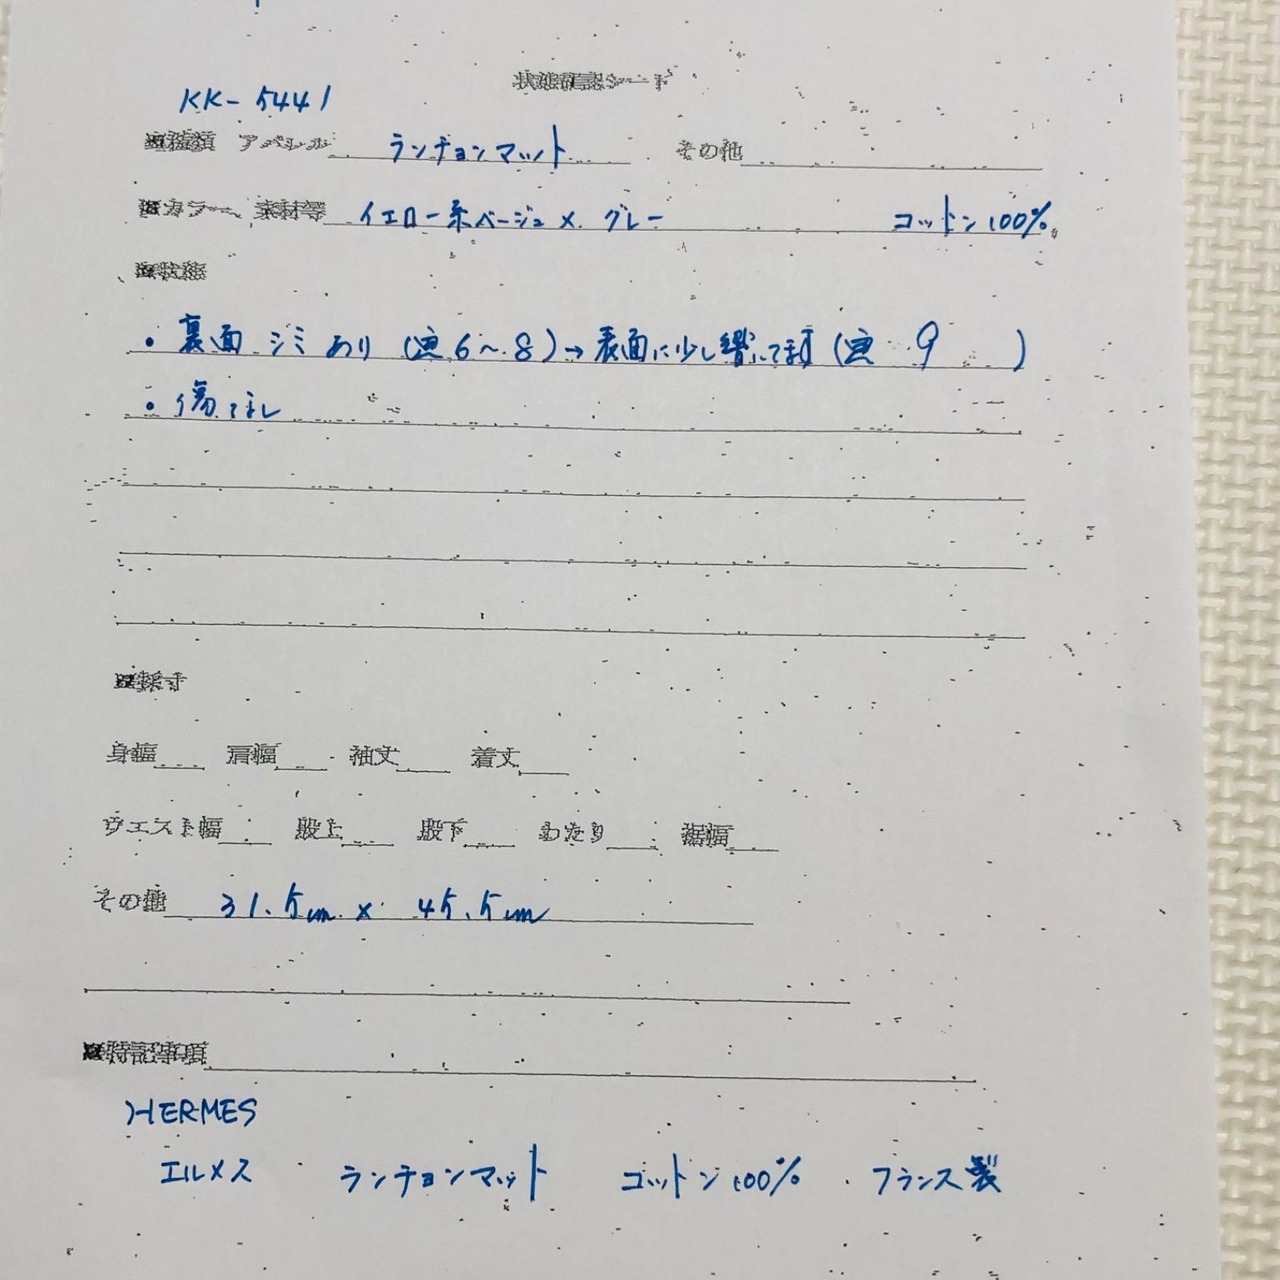 状態確認シート
KK-5441
※種類 アパレル ランチョンマット その他
※カラー、素材等 イエロー系ベージュ × グレー コットン100%
※状態
・裏面 シミあり (画6〜8)→表面に少し響いてます(画 9 )
・傷なし
※採寸
身幅 肩幅 袖丈 着丈
ウエスト幅 股上 股下 わたり 裾幅
その他 31.5cm × 45.5cm
※特記事項
HERMES
エルメス ランチョンマット コットン100% フランス製